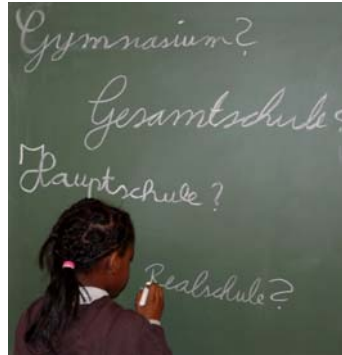 Gymnasium?
Gesamtschule?
Hauptschule?
Realschule?